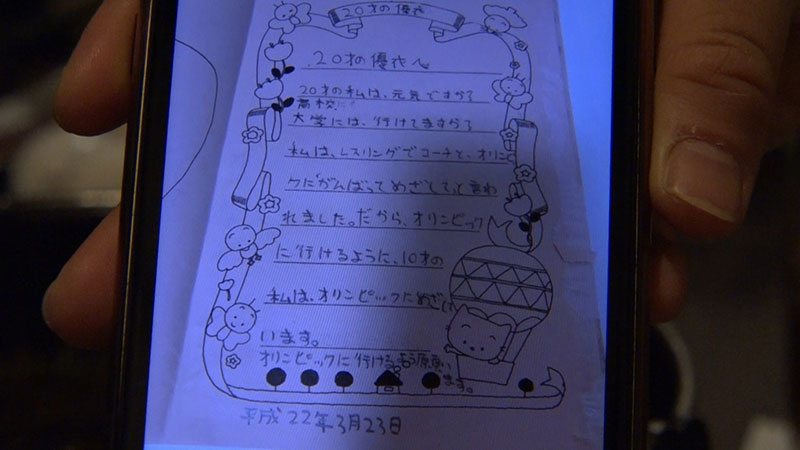 20才の優衣
20才の優衣へ
20才の私は、元気ですか?
高校
大学には、行けてますか?
私は、レスリングでコーチと、オリンピッ
クにがんばってめざしてと言わ
れました。だから、オリンピック
に行けるように、10才の
私は、オリンピックにめざして
います。
オリンピックに行けるよう願い
ます。
平成22年3月23日